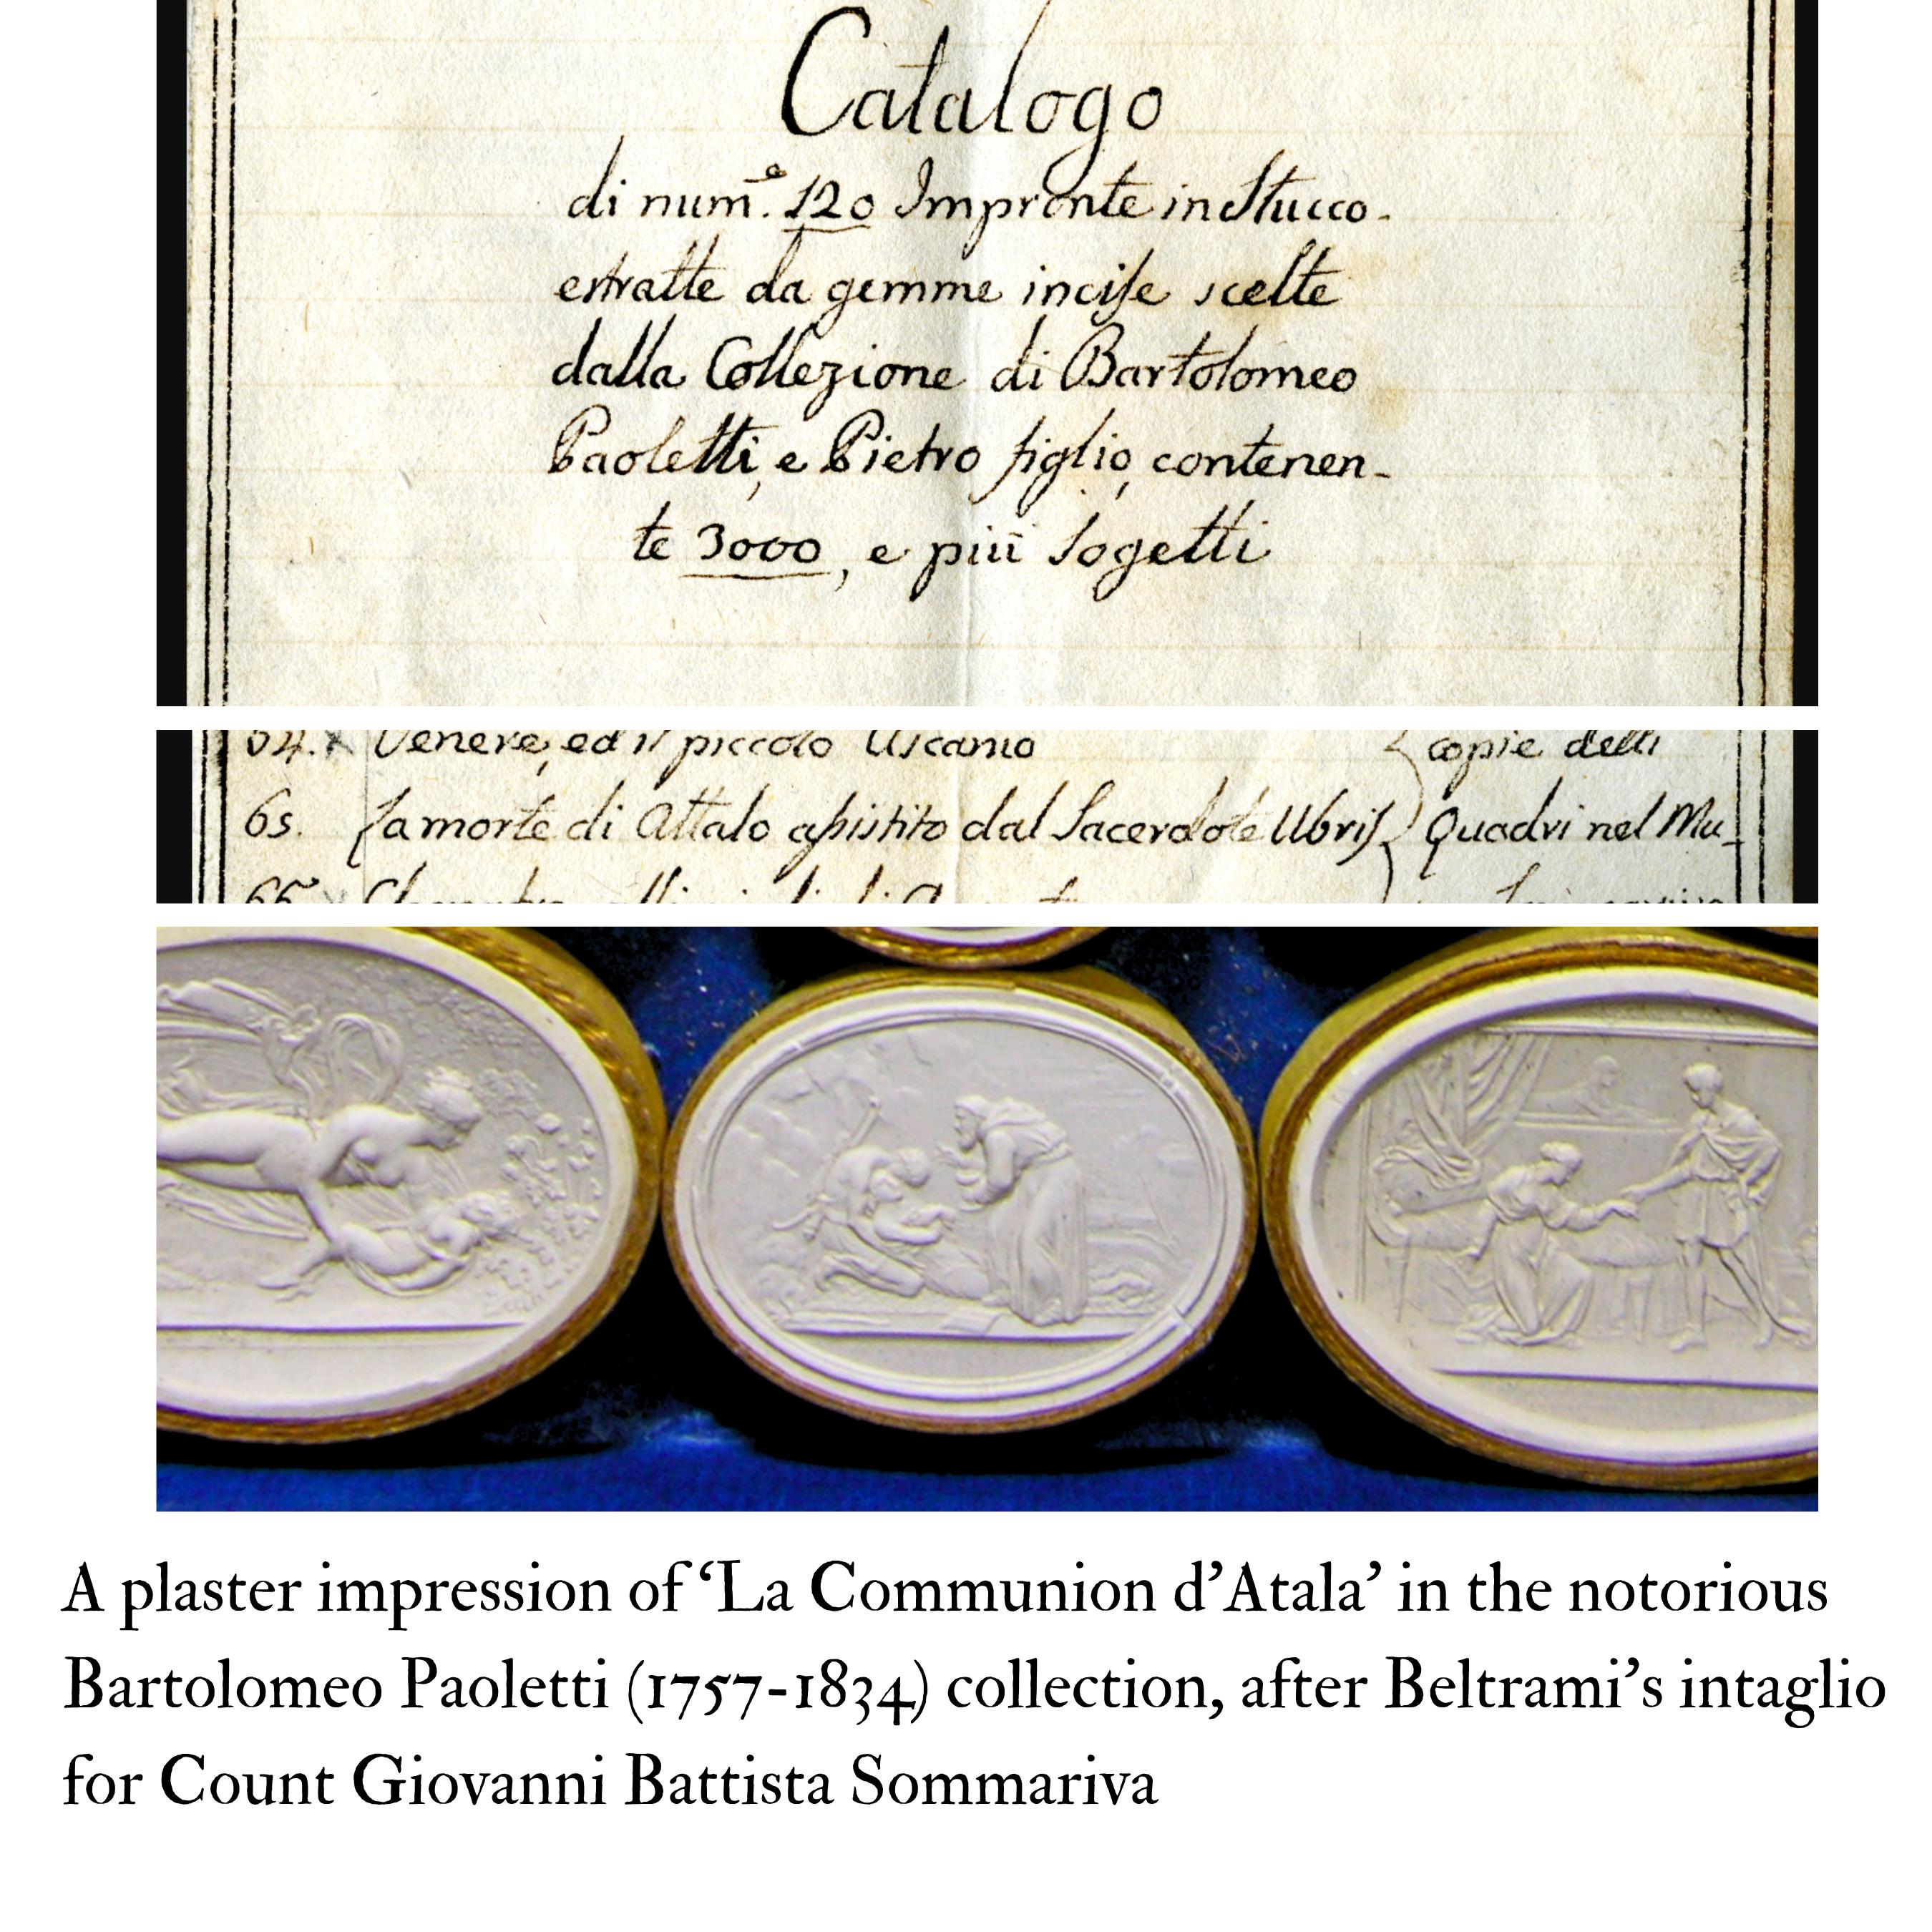 Catalogo
di num.º 120 Impronte in Stucco.
estratte da gemme incise scelte
dalla Collezione di Bartolomeo
Paoletti, e Pietro figlio, contenen-
te 3000, e più Sogetti
64. x Venere, ed il piccolo Ascanio copie delli
65. La morte di Attalo assistito dal Sacerdote Ubris Quadri nel Mu-
66.
A plaster impression of ‘La Communion d’Atala’ in the notorious
Bartolomeo Paoletti (1757-1834) collection, after Beltrami’s intaglio
for Count Giovanni Battista Sommariva